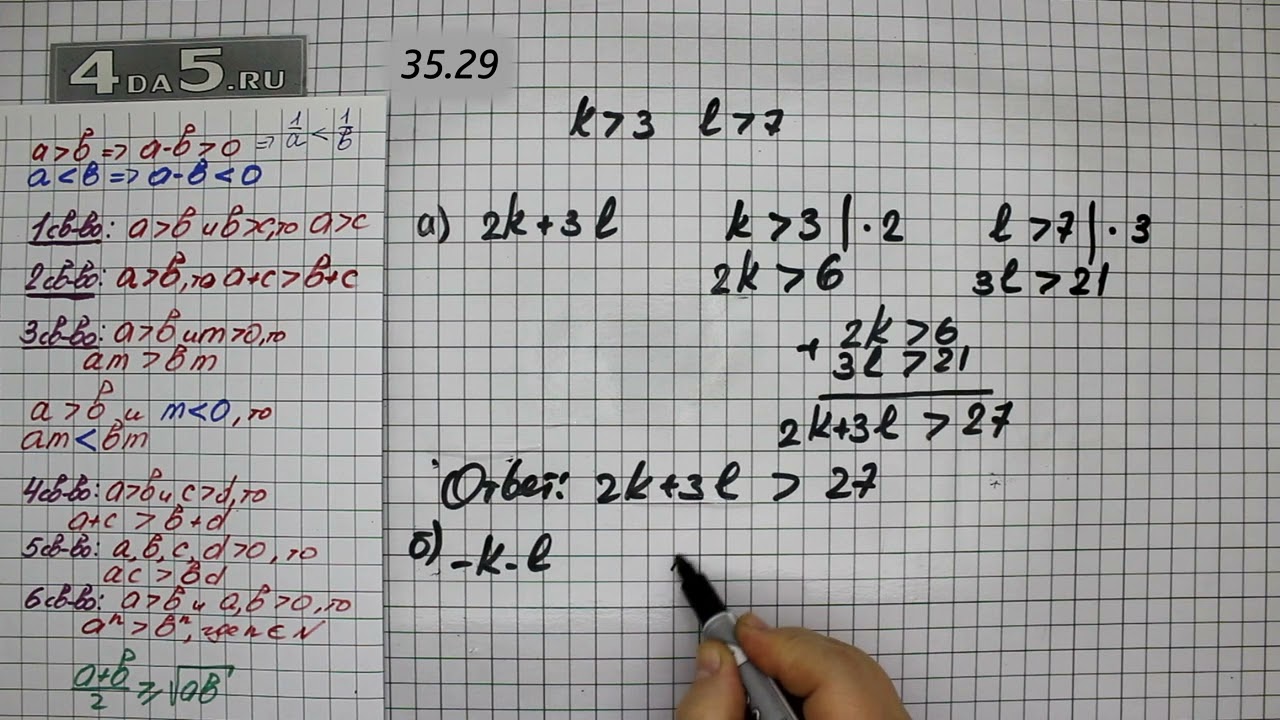 4DA5.RU
a>b => a-b>0 => 1/a < 1/b
a<b => a-b<0
1св-во: a>b и b>c, то a>c
2св-во: a>b, то a+c>b+c
3св-во: a>b и m>0, то
am>bm
a>b и m<0, то
am<bm
4св-во: a>b и c>d, то
a+c>b+d
5св-во: a,b,c,d>0, то
ac>bd
6св-во: a>b и a,b>0, то
aⁿ>bⁿ, где n∈N
(a+b)/2 ≥ √ab
35.29
k>3 l>7
а) 2k+3l k>3|·2 l>7|·3
2k>6 3l>21
+ 2k>6
3l>21
2k+3l>27
Ответ: 2k+3l > 27
б) -k-l